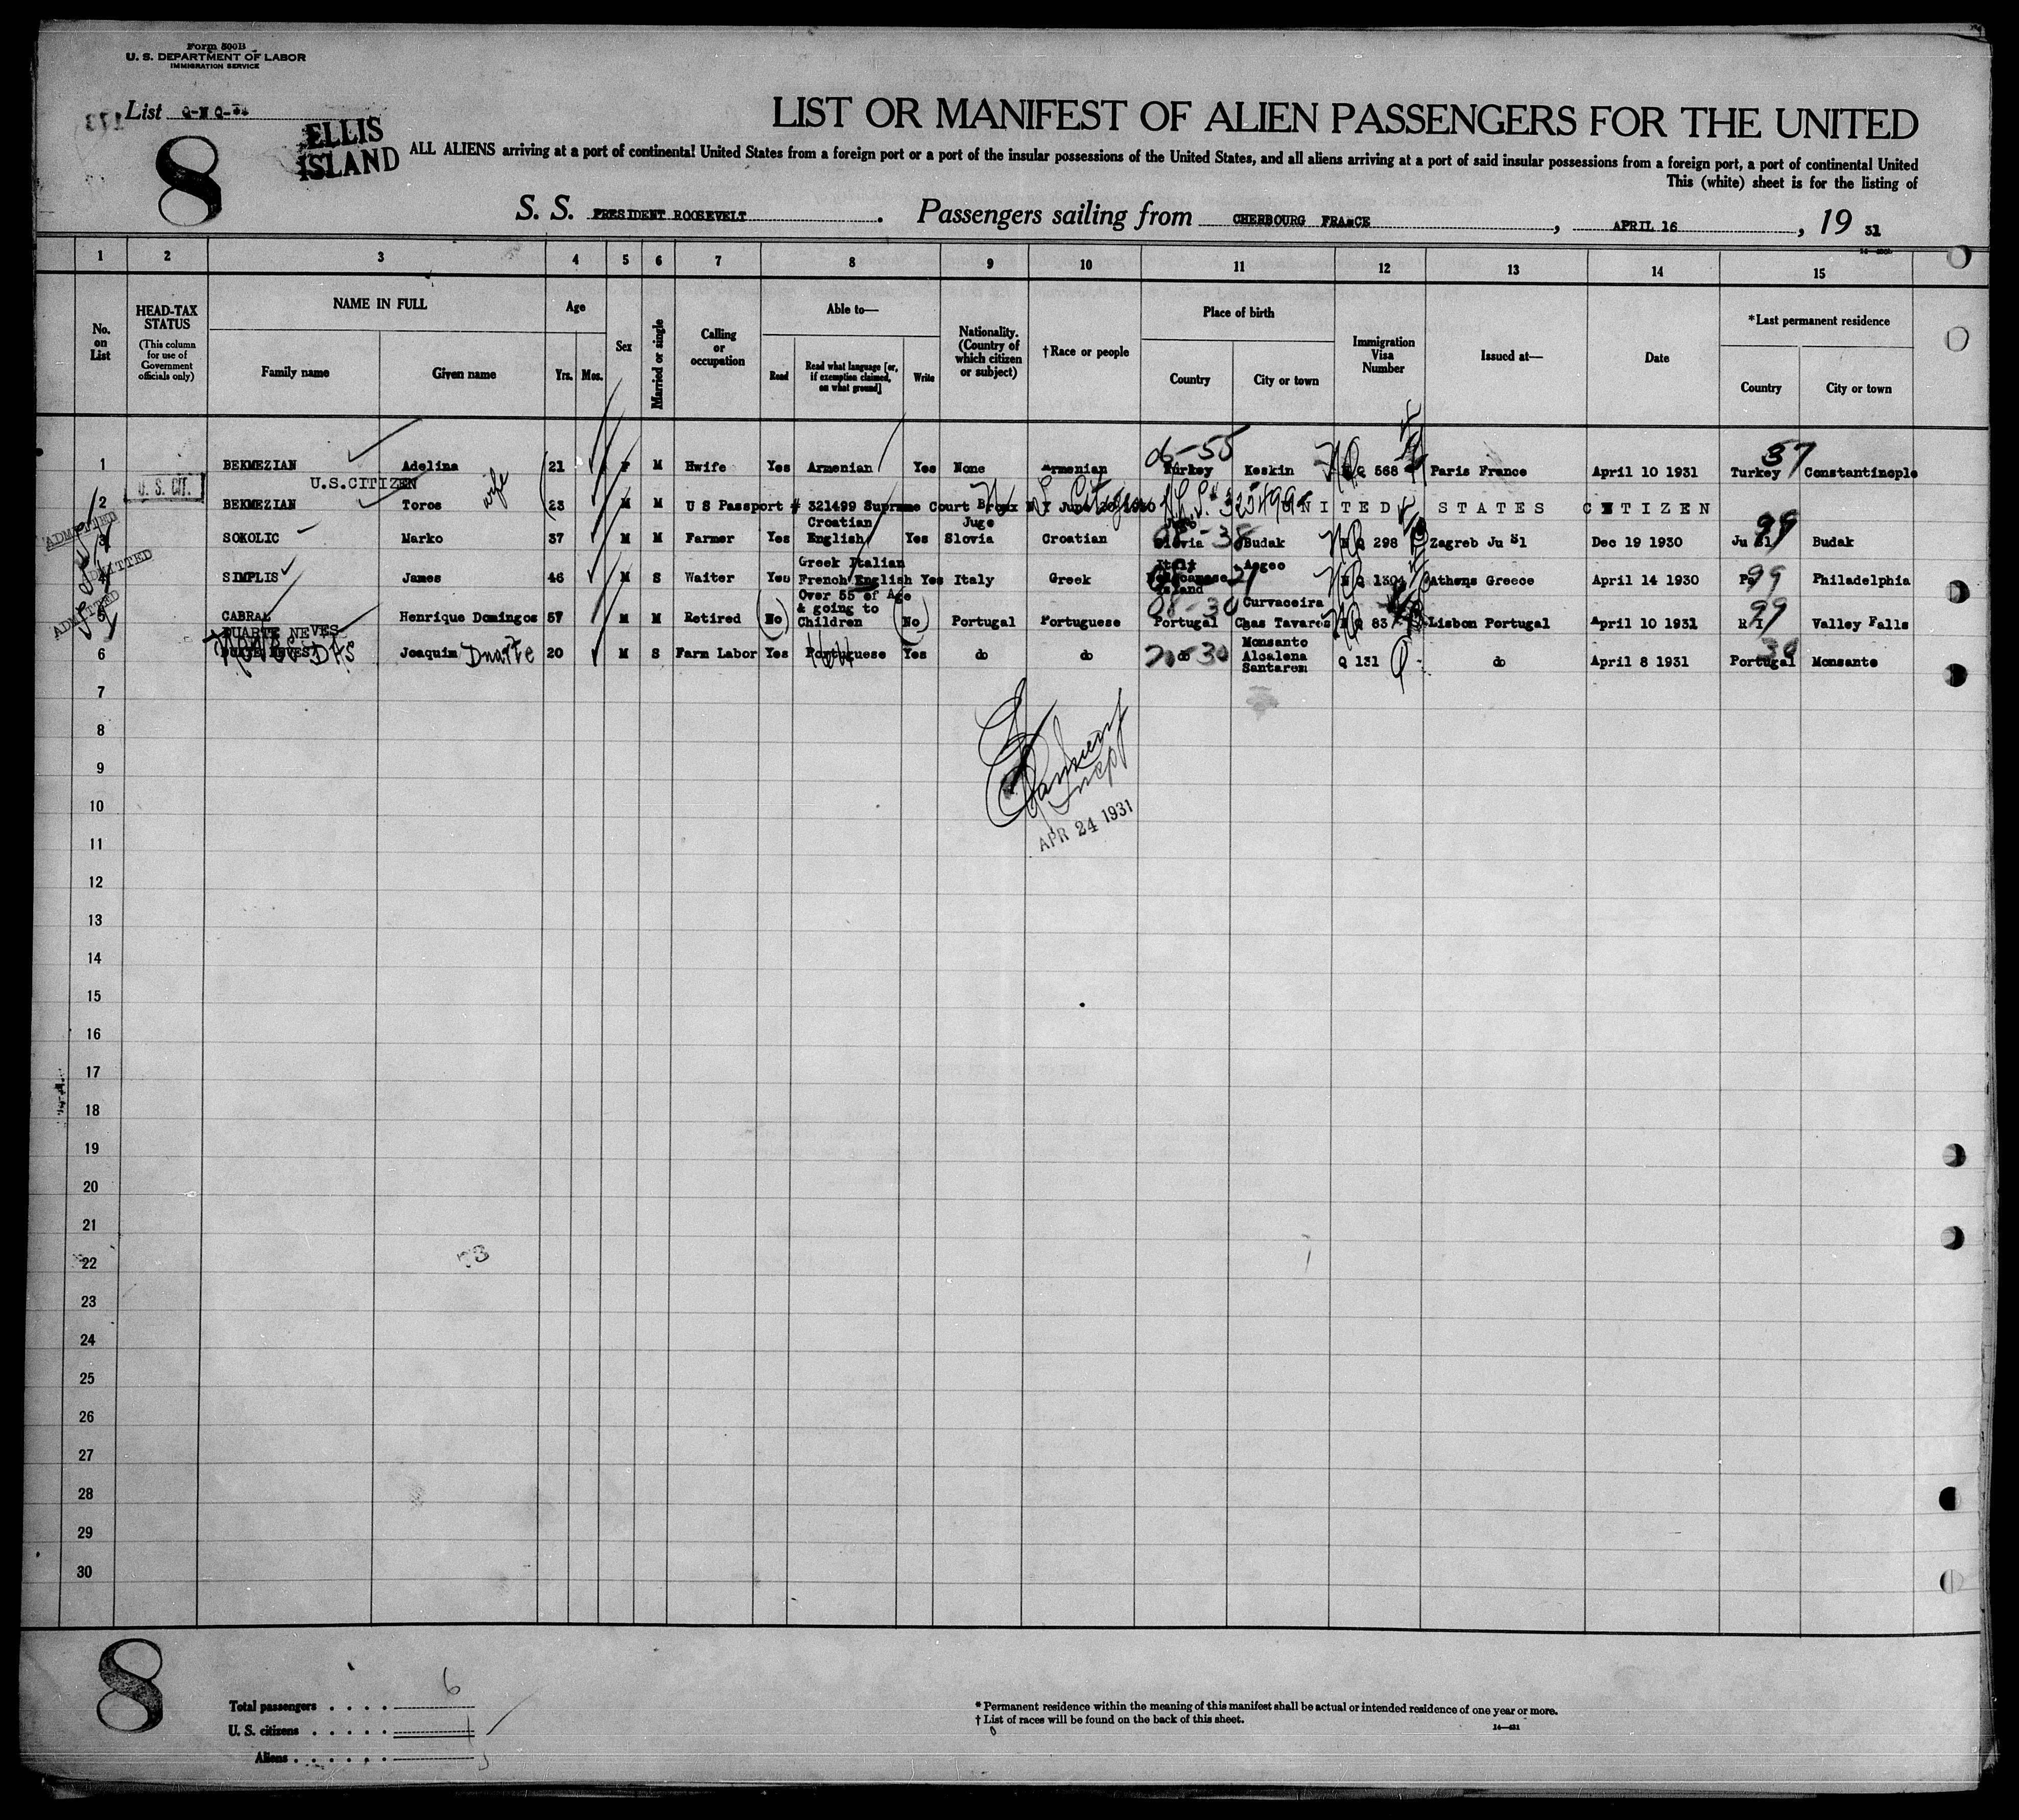 Form 500B
U. S. DEPARTMENT OF LABOR
IMMIGRATION SERVICE
List Q-N Q-**
8
ELLIS
ISLAND
LIST OR MANIFEST OF ALIEN PASSENGERS FOR THE UNITED
ALL ALIENS arriving at a port of continental United States from a foreign port or a port of the insular possessions of the United States, and all aliens arriving at a port of said insular possessions from a foreign port, a port of continental United
This (white) sheet is for the listing of
S. S. PRESIDENT ROOSEVELT. Passengers sailing from CHERBOURG FRANCE, APRIL 16, 19 31
1 2 3 4 5 6 7 8 9 10 11 12 13 14 15
No. on List
HEAD-TAX STATUS (This column for use of Government officials only)
NAME IN FULL
Family name Given name
Age
Yrs. Mos.
Sex
Married or single
Calling or occupation
Able to—
Read Read what language [or, if exemption claimed, on what ground] Write
Nationality. (Country of which citizen or subject)
†Race or people
Place of birth
Country City or town
Immigration Visa Number
Issued at—
Date
*Last permanent residence
Country City or town
06-55 37
1 BEKMEZIAN Adelina wife 21 F M Hwife Yes Armenian Yes None Armenian Turkey Keskin NQ 568 Paris France April 10 1931 Turkey Constantinople
U. S. CIT. U.S.CITIZEN
2 BEKMEZIAN Toros 23 M M U S Passport # 321499 Supreme Court Bronx N Y June UNITED STATES CITIZEN
ADMITTED
Croatian Juge
3 SOKOLIC Marko 37 M M Farmer Yes English Yes Slovia Croatian Slovia 38 Budak NQ 298 Zagreb Ju Sl Dec 19 1930 Ju Sl 99 Budak
ADMITTED
Greek Italian Italy Argeo
4 SIMPLIS James 46 M S Waiter Yes French English Yes Italy Greek Island NQ 1304 Athens Greece April 14 1930 Pa 99 Philadelphia
ADMITTED
Over 55 of Age
& going to 08-30 Curvaceira
5 CABRAL Henrique Domingos 57 M M Retired No Children No Portugal Portuguese Portugal Chas Tavares NQ 837 Lisbon Portugal April 10 1931 R I 99 Valley Falls
DUARTE NEVES
Monsanto
6 DAS Joaquim Duarte 20 M S Farm Labor Yes Portuguese Yes do do do 30 Alcalena Q 131 do April 8 1931 Portugal 30 Monsanto
Santarem
7
8
9
10
APR 24 1931
11
12
13
14
15
16
17
18
19
20
21
22
23
24
25
26
27
28
29
30
8
Total passengers . . . . 6
U. S. citizens . . . . . 1
Aliens . . . . . . 5
* Permanent residence within the meaning of this manifest shall be actual or intended residence of one year or more.
† List of races will be found on the back of this sheet.